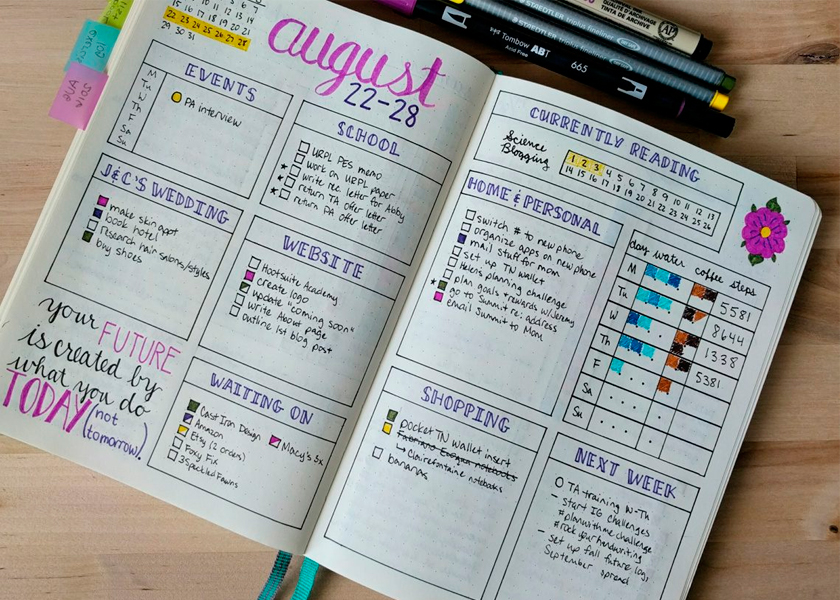 7
14
15 16 17 18 19 20 21
22 23 24 25 26 27 28
29 30 31
august
22-28
EVENTS
M
Tu
W
Th
F
Sa
Su
PA interview
SCHOOL
URPL PES memo
work on URPL paper
write rec. letter for Abby
return TA offer letter
return PA offer letter
J&C'S WEDDING
make skin appt
book hotel
research hair salons/styles
buy shoes
WEBSITE
Hootsuite Academy
create logo
update "coming soon"
write About page
outline 1st blog post
your FUTURE
is created by
what you do
TODAY (not
tomorrow).
WAITING ON
Cast Iron Design
Amazon
Etsy (2 orders)
Foxy Fix
3 Speckled Fawns
Macy's 5x
STAEDTLER triplus fineliner
STAEDTLER triplus fineliner
Tombow ABT
Acid Free
665
TINTA DE ARCHIVO
AP
CURRENTLY READING
Science
Blogging
1 2 3 4 5 6 7 8 9 10 11 12 13
14 15 16 17 18 19 20 21 22 23 24 25 26
HOME & PERSONAL
switch # to new phone
organize apps on new phone
mail stuff for mom
set up TN wallet
Helen's planning challenge
plan goals + rewards w/Jeremy
go to Summit re: address
email Summit to Mom
day water coffee steps
M 5581
Tu 8644
W 1338
Th 5381
F
Sa
Su
SHOPPING
pocket TN wallet insert
Fabriano Ecoqua notebooks
↳ Clairefontaine notebooks
bananas
NEXT WEEK
TA training W-Th
- start IG challenges
#planwithmechallenge
#rockyourhandwriting
- set up fall future log,
September spread